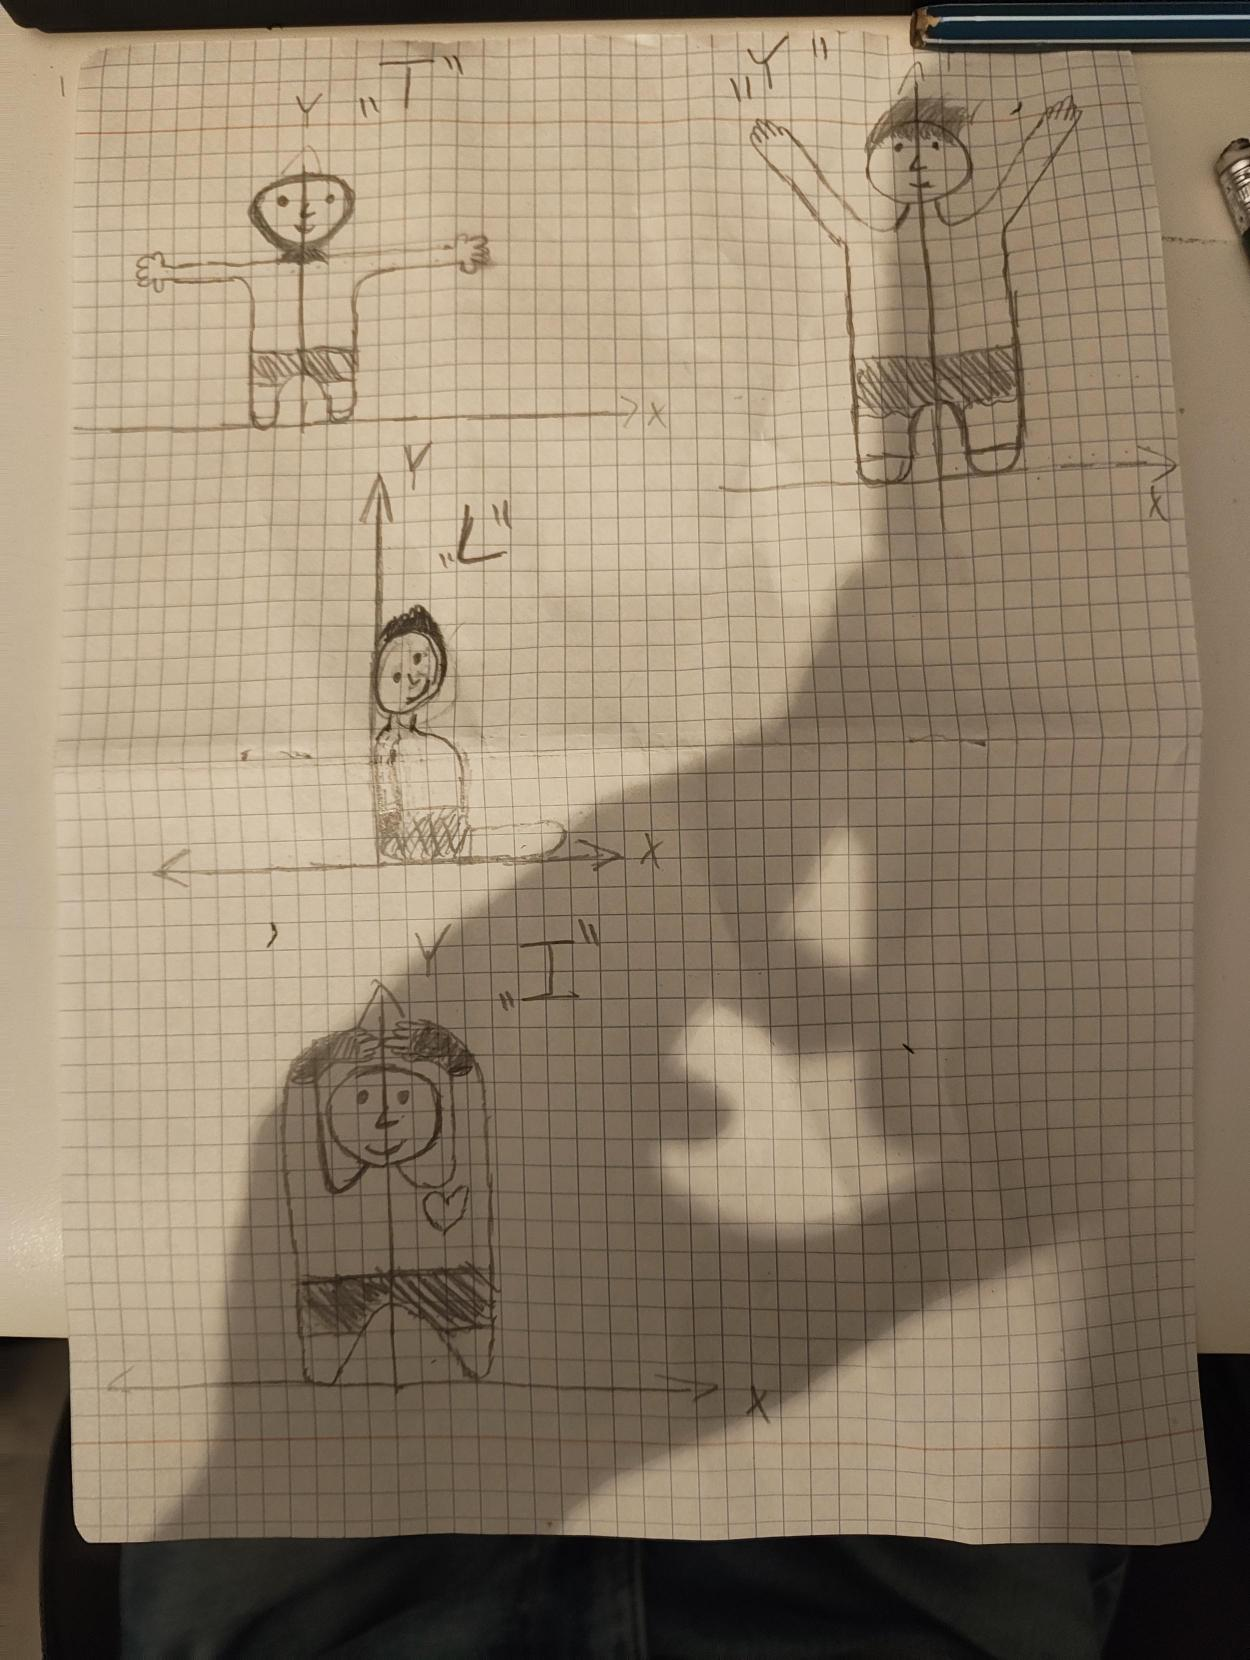 Y „T"
„Y"
X
X
Y
„L"
X
Y „I"
X